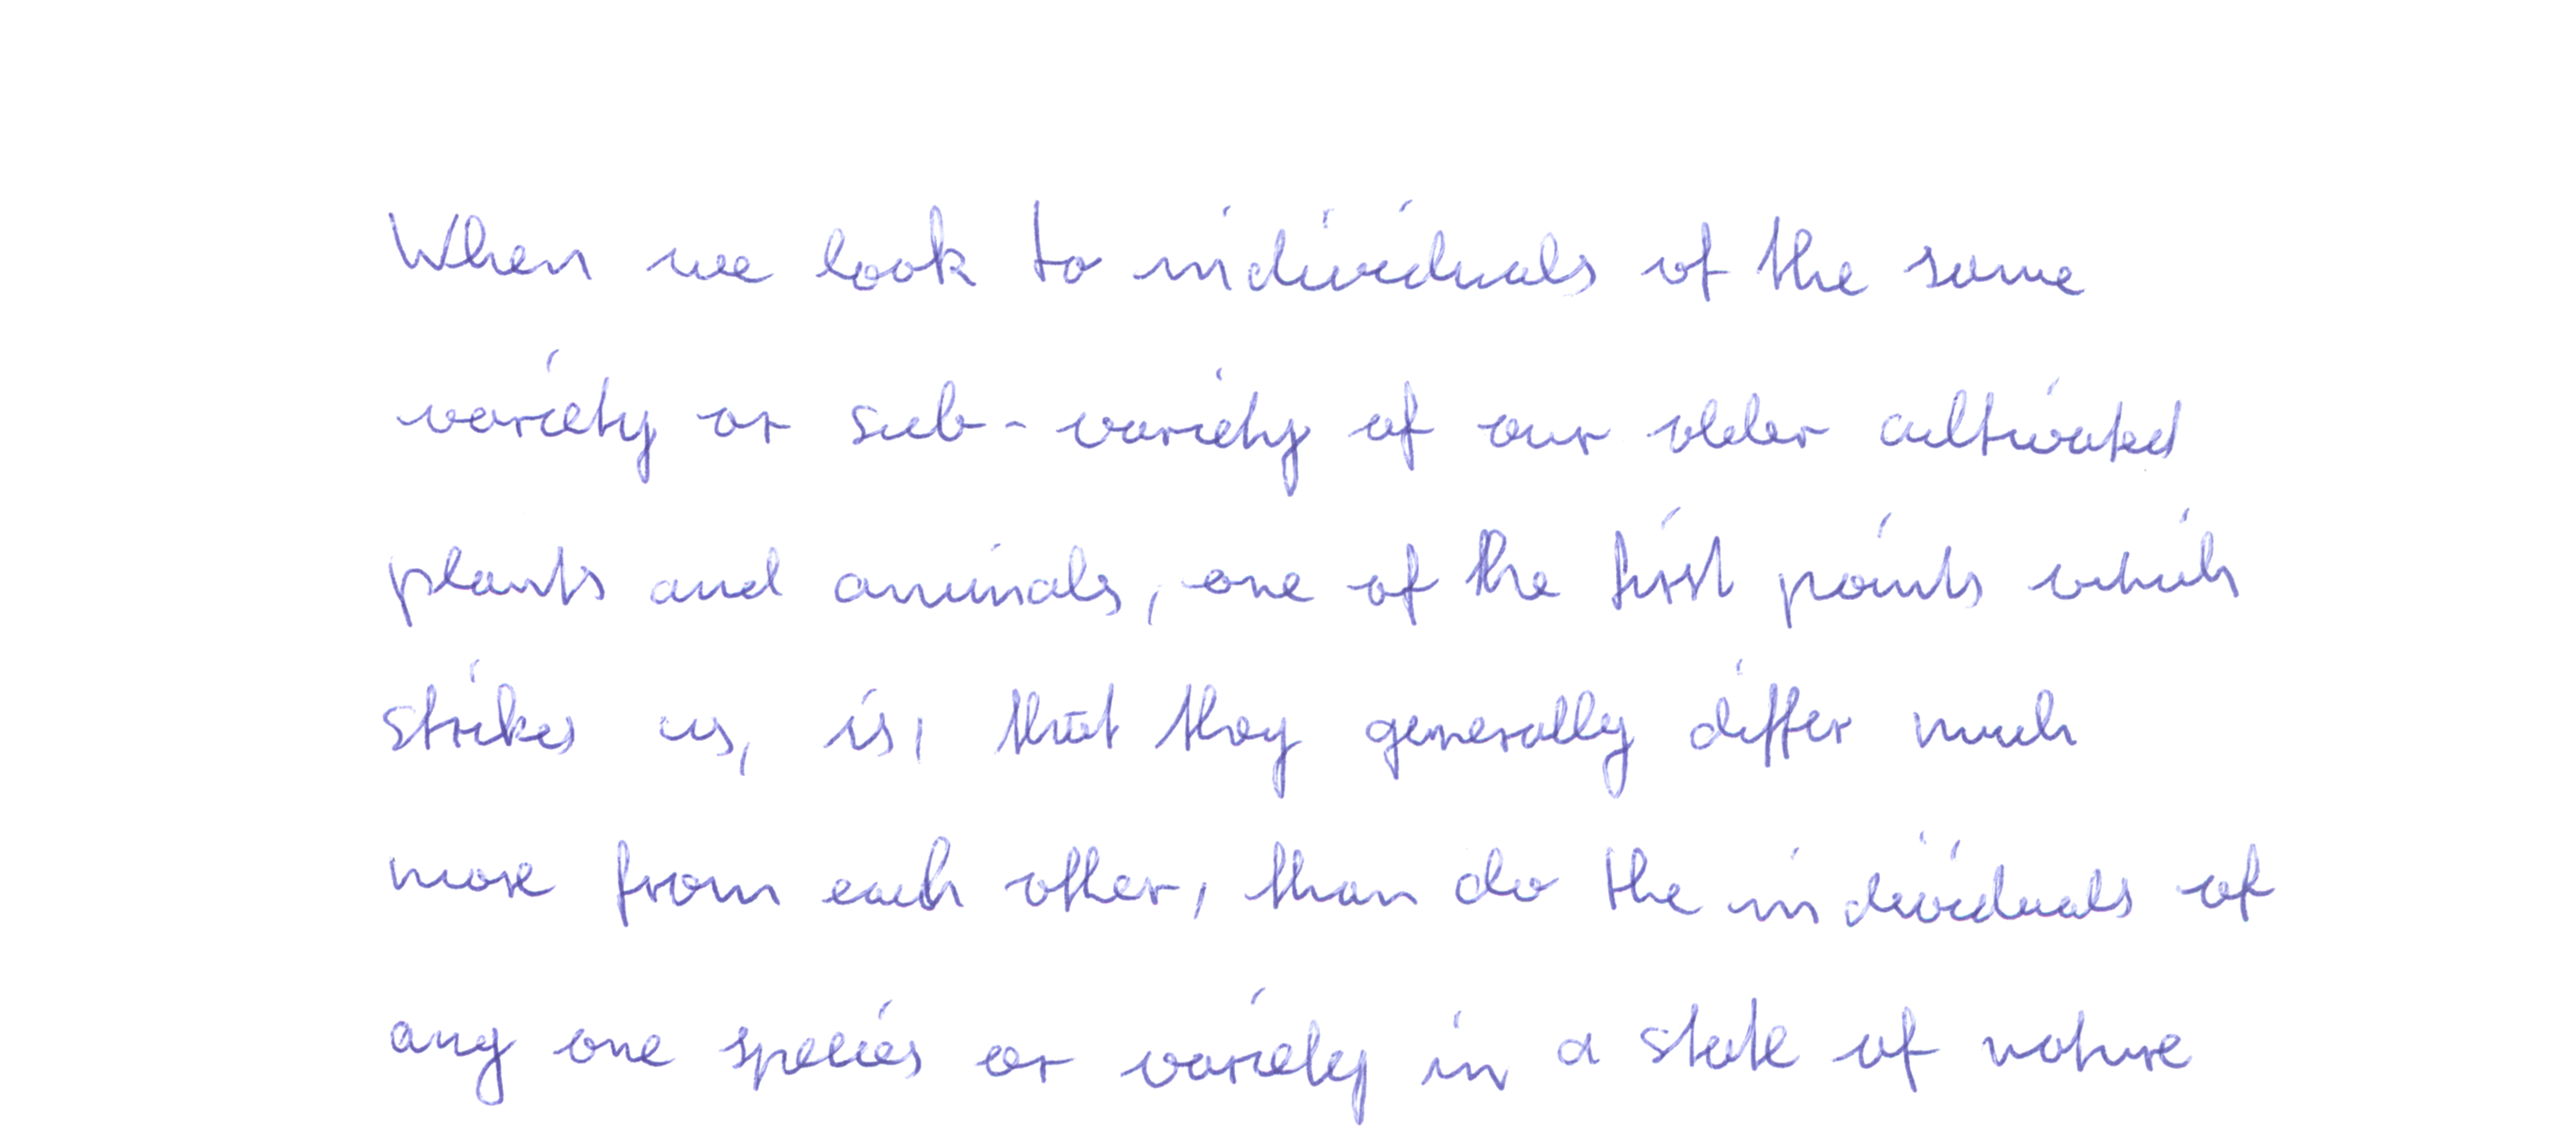 When we look to individuals of the same
variety or sub-variety of our older cultivated
plants and animals, one of the first points which
strikes us, is, that they generally differ much
more from each other, than do the individuals of
any one species or variety in a state of nature